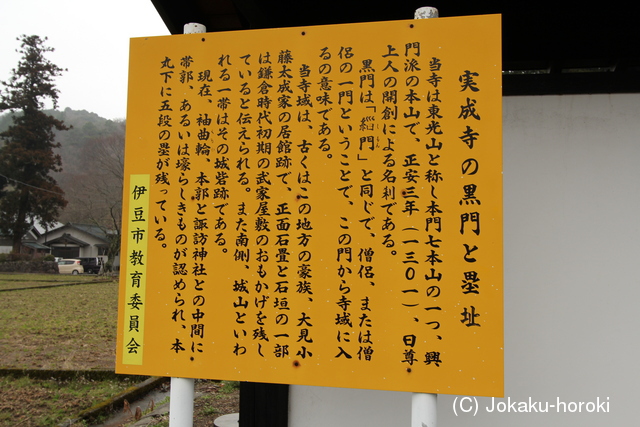 実成寺の黒門と塁址
当寺は東光山と称し本門七本山の一つ、興
門派の本山で、正安三年（一三〇一）、日尊
上人の開創による名刹である。
黒門は「緇門」と同じで、僧侶、または僧
侶の一門ということで、この門から寺域に入
るの意味である。
当寺域は、古くはこの地方の豪族、大見小
藤太成家の居館跡で、正面石畳と石垣の一部
は鎌倉時代初期の武家屋敷のおもかげを残し
ていると伝えられる。また南側、城山といわ
れる一帯はその城砦跡である。
現在、袖曲輪、本郭と諏訪神社との中間に
帯郭、あるいは壕らしきものが認められ、本
丸下に五段の塁が残っている。
伊豆市教育委員会
(C) Jokaku-horoki